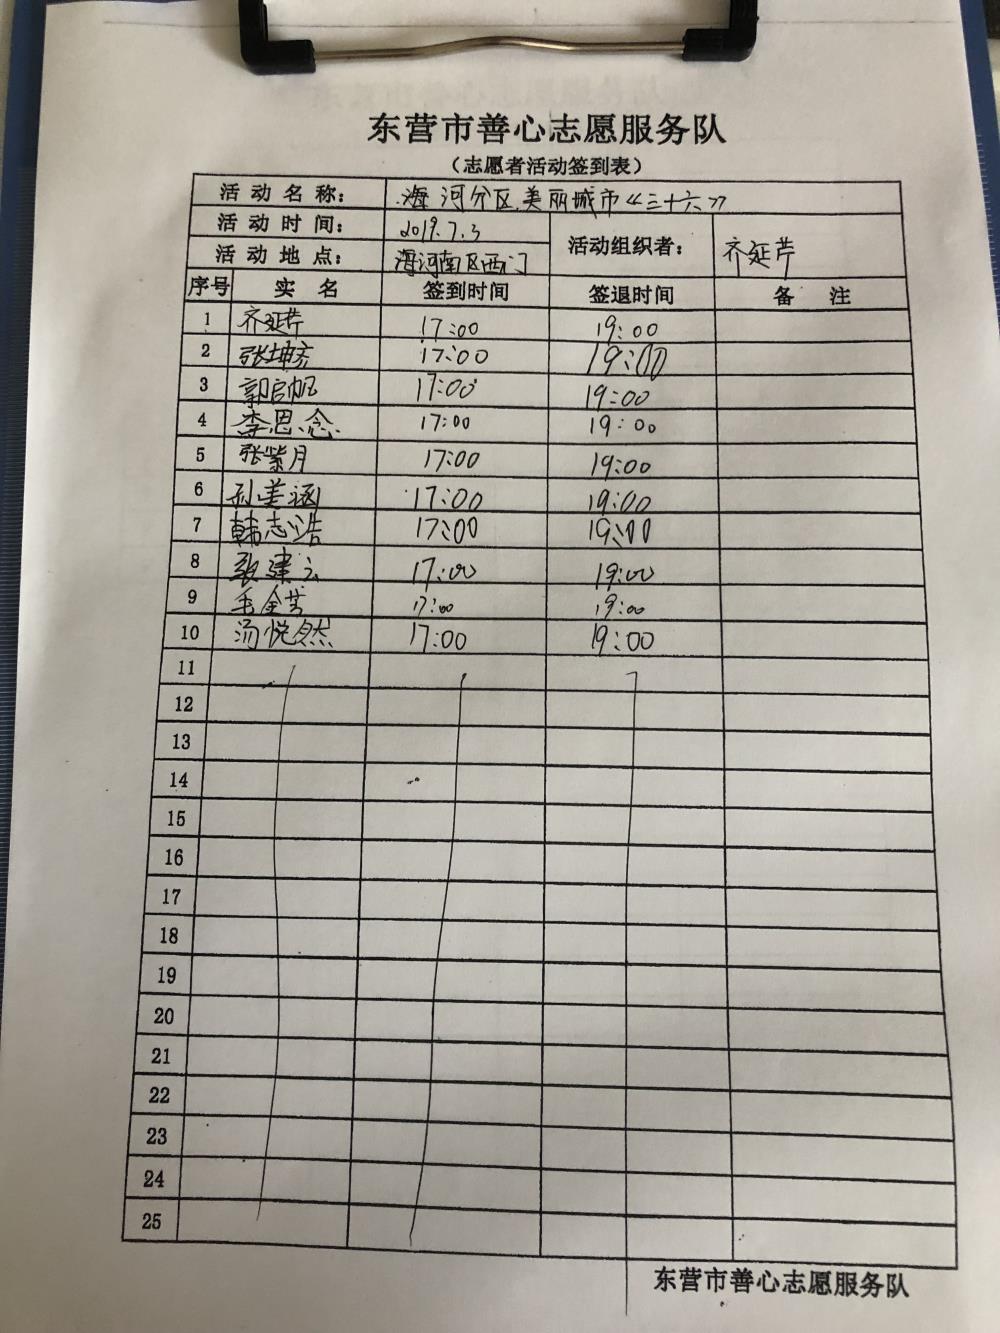 东营市善心志愿服务队
（志愿者活动签到表）
活动名称： 海河分区美丽城市《三十六》
活动时间： 2019.7.3 活动组织者： 齐延芹
活动地点： 海河南区西门
序号 实名 签到时间 签退时间 备注
1 齐延芹 17:00 19:00
2 张坤彦 17:00 19:00
3 郭启帆 17:00 19:00
4 李思念 17:00 19:00
5 张紫月 17:00 19:00
6 孙美涵 17:00 19:00
7 韩志浩 17:00 19:00
8 张建云 17:00 19:00
9 17:00 19:00
10 汤悦然 17:00 19:00
11
12
13
14
15
16
17
18
19
20
21
22
23
24
25
东营市善心志愿服务队